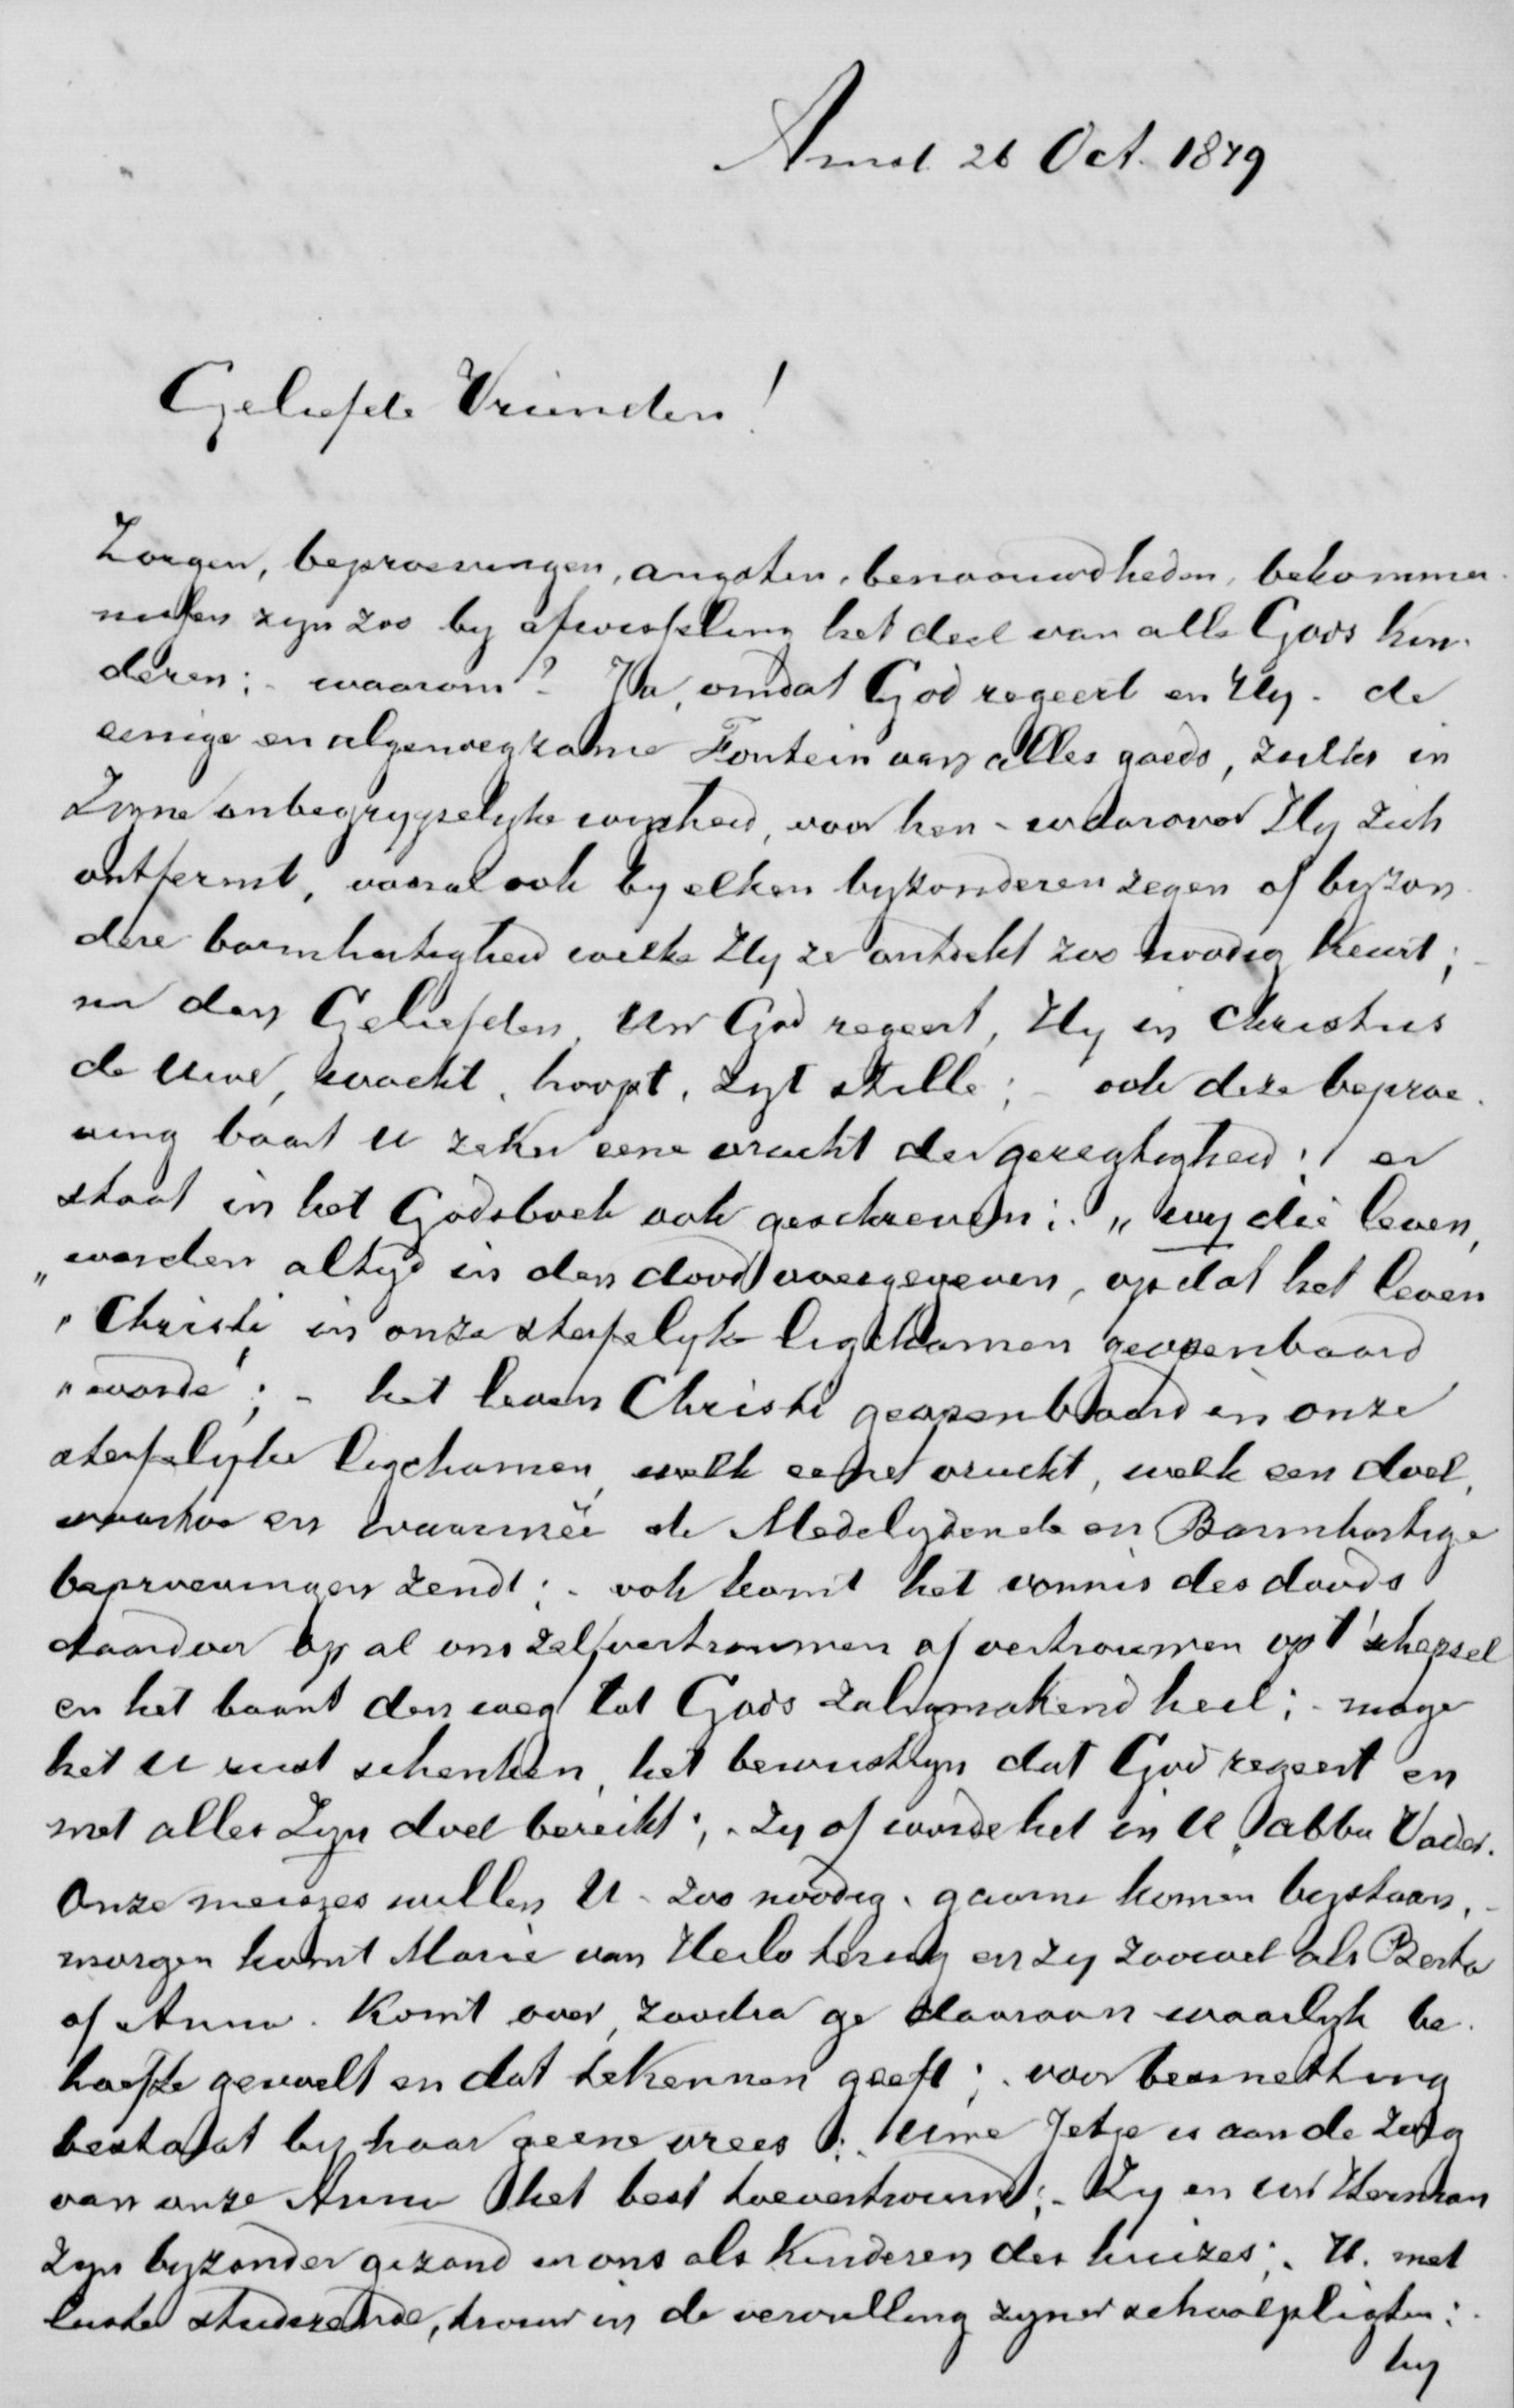 Amst. 26 Oct. 1879
Geliefde Vrienden!
Zorgen, beproevingen, angsten, benaauwdheden, bekommer-
nissen zyn zoo by afwisseling het deel van alle Gods kin-
deren; - waarom? Ja, omdat God regeert en Hy - de
eenige en algenoegzame Fontein van alles goeds, zulks in
Zyne onbegrypelyke wysheid, voor hen - waarover Hy zich
ontfermt, vooral ook by elken byzonderen zegen of byzon-
dere barmhartigheid welke Hy ze ontdekt zoo noodig keurt; -
nu dan Geliefden, Uw God regeert, Hy in Christus
de Uwe, wacht, hoopt, zyt stille; - ook deze beproe-
ving baart U zeker eene vrucht der geregtigheid; er
staat in het Godsboek ook geschreven: „wy die leven,
„worden altyd in den dood overgegeven, opdat het leven
„Christi in onze sterfelyke ligchamen geopenbaard
„worde”; - het leven Christi geopenbaard in onze
sterfelyke ligchamen, welk eene vrucht, welk een doel,
waartoe en waarmeê de Medelydende en Barmhartige
beproevingen zendt; - ook komt het vonnis des doods
daardoor op al ons zelfvertrouwen of vertrouwen op 't schepsel
en het baant den weg tot Gods zaligmakend heil; - moge
het U rust schenken, het bewustzyn dat God regeert en
met alles Zyn doel bereikt; - zy of worde het in U „abba Vader.
Onze meisjes willen U - zoo noodig - gaarne komen bystaan, -
morgen komt Marie van Heilo terug en zy zoowel als Berta
of Anna. Komt over, zoodra ge daaraan waarlyk be-
hoefte gevoelt en dat te kennen geeft; - voor besmetting
bestaat by haar geene vrees; - Uwe Jetje is aan de zorg
van onze Anna het best toevertrouwd; - Zy en uw Herman
zyn byzonder gezond en ons als kinderen des huizes; - H. met
luste studerende, trouw in de vervulling zyner schoolpligten; -
hy